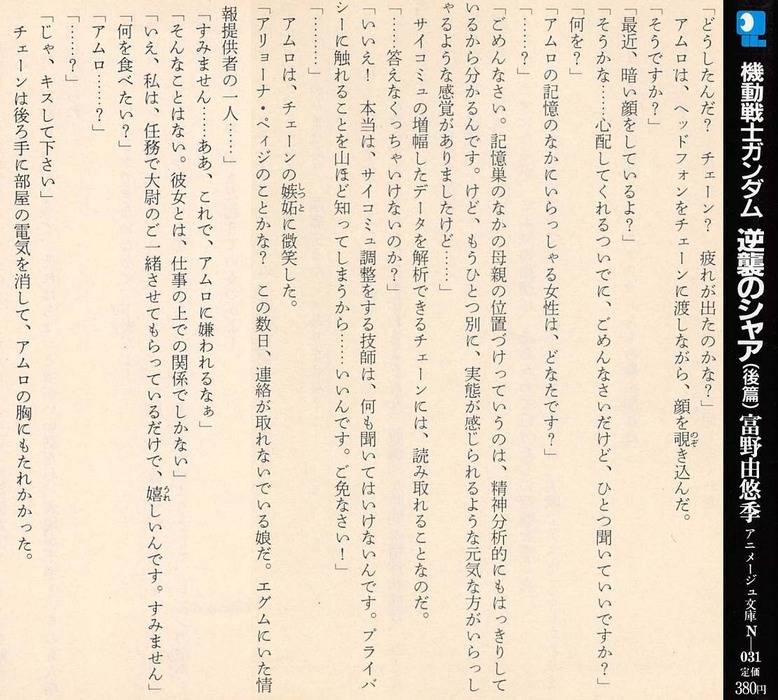 機動戦士ガンダム 逆襲のシャア(後篇) 富野由悠季 アニメージュ文庫 N―031 定価380円
「どうしたんだ? チェーン? 疲れが出たのかな?」
アムロは、ヘッドフォンをチェーンに渡しながら、顔を覗き込んだ。
「そうですか?」
「最近、暗い顔をしているよ?」
「そうかな……心配してくれるついでに、ごめんなさいだけど、ひとつ聞いていいですか?」
「何を?」
「アムロの記憶のなかにいらっしゃる女性は、どなたです?」
「……?」
「ごめんなさい。記憶巣のなかの母親の位置づけっていうのは、精神分析的にもはっきりして
いるから分かるんです。けど、もうひとつ別に、実態が感じられるような元気な方がいらっし
ゃるような感覚がありましたけど……」
サイコミュの増幅したデータを解析できるチェーンには、読み取れることなのだ。
「……答えなくっちゃいけないのか?」
「いいえ! 本当は、サイコミュ調整をする技師は、何も聞いてはいけないんです。プライバ
シーに触れることを山ほど知ってしまうから……いいんです。ご免なさい!」
「………」
アムロは、チェーンの嫉妬に微笑した。
「アリョーナ・ペイジのことかな? この数日、連絡が取れないでいる娘だ。エグムにいた情
報提供者の一人……」
「すみません……ああ、これで、アムロに嫌われるなぁ」
「そんなことはない。彼女とは、仕事の上での関係でしかない」
「いえ、私は、任務で大尉のご一緒させてもらっているだけで、嬉しいんです。すみません」
「何を食べたい?」
「アムロ……?」
「……?」
「じゃ、キスして下さい」
チェーンは後ろ手に部屋の電気を消して、アムロの胸にもたれかかった。